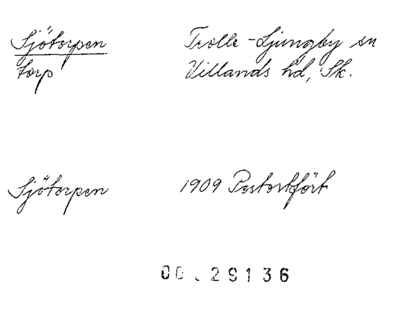 Sjötorpen Trolle-Ljungby sn
torp Villands hd, Sk.
Sjötorpen 1909 Postortfört
29136